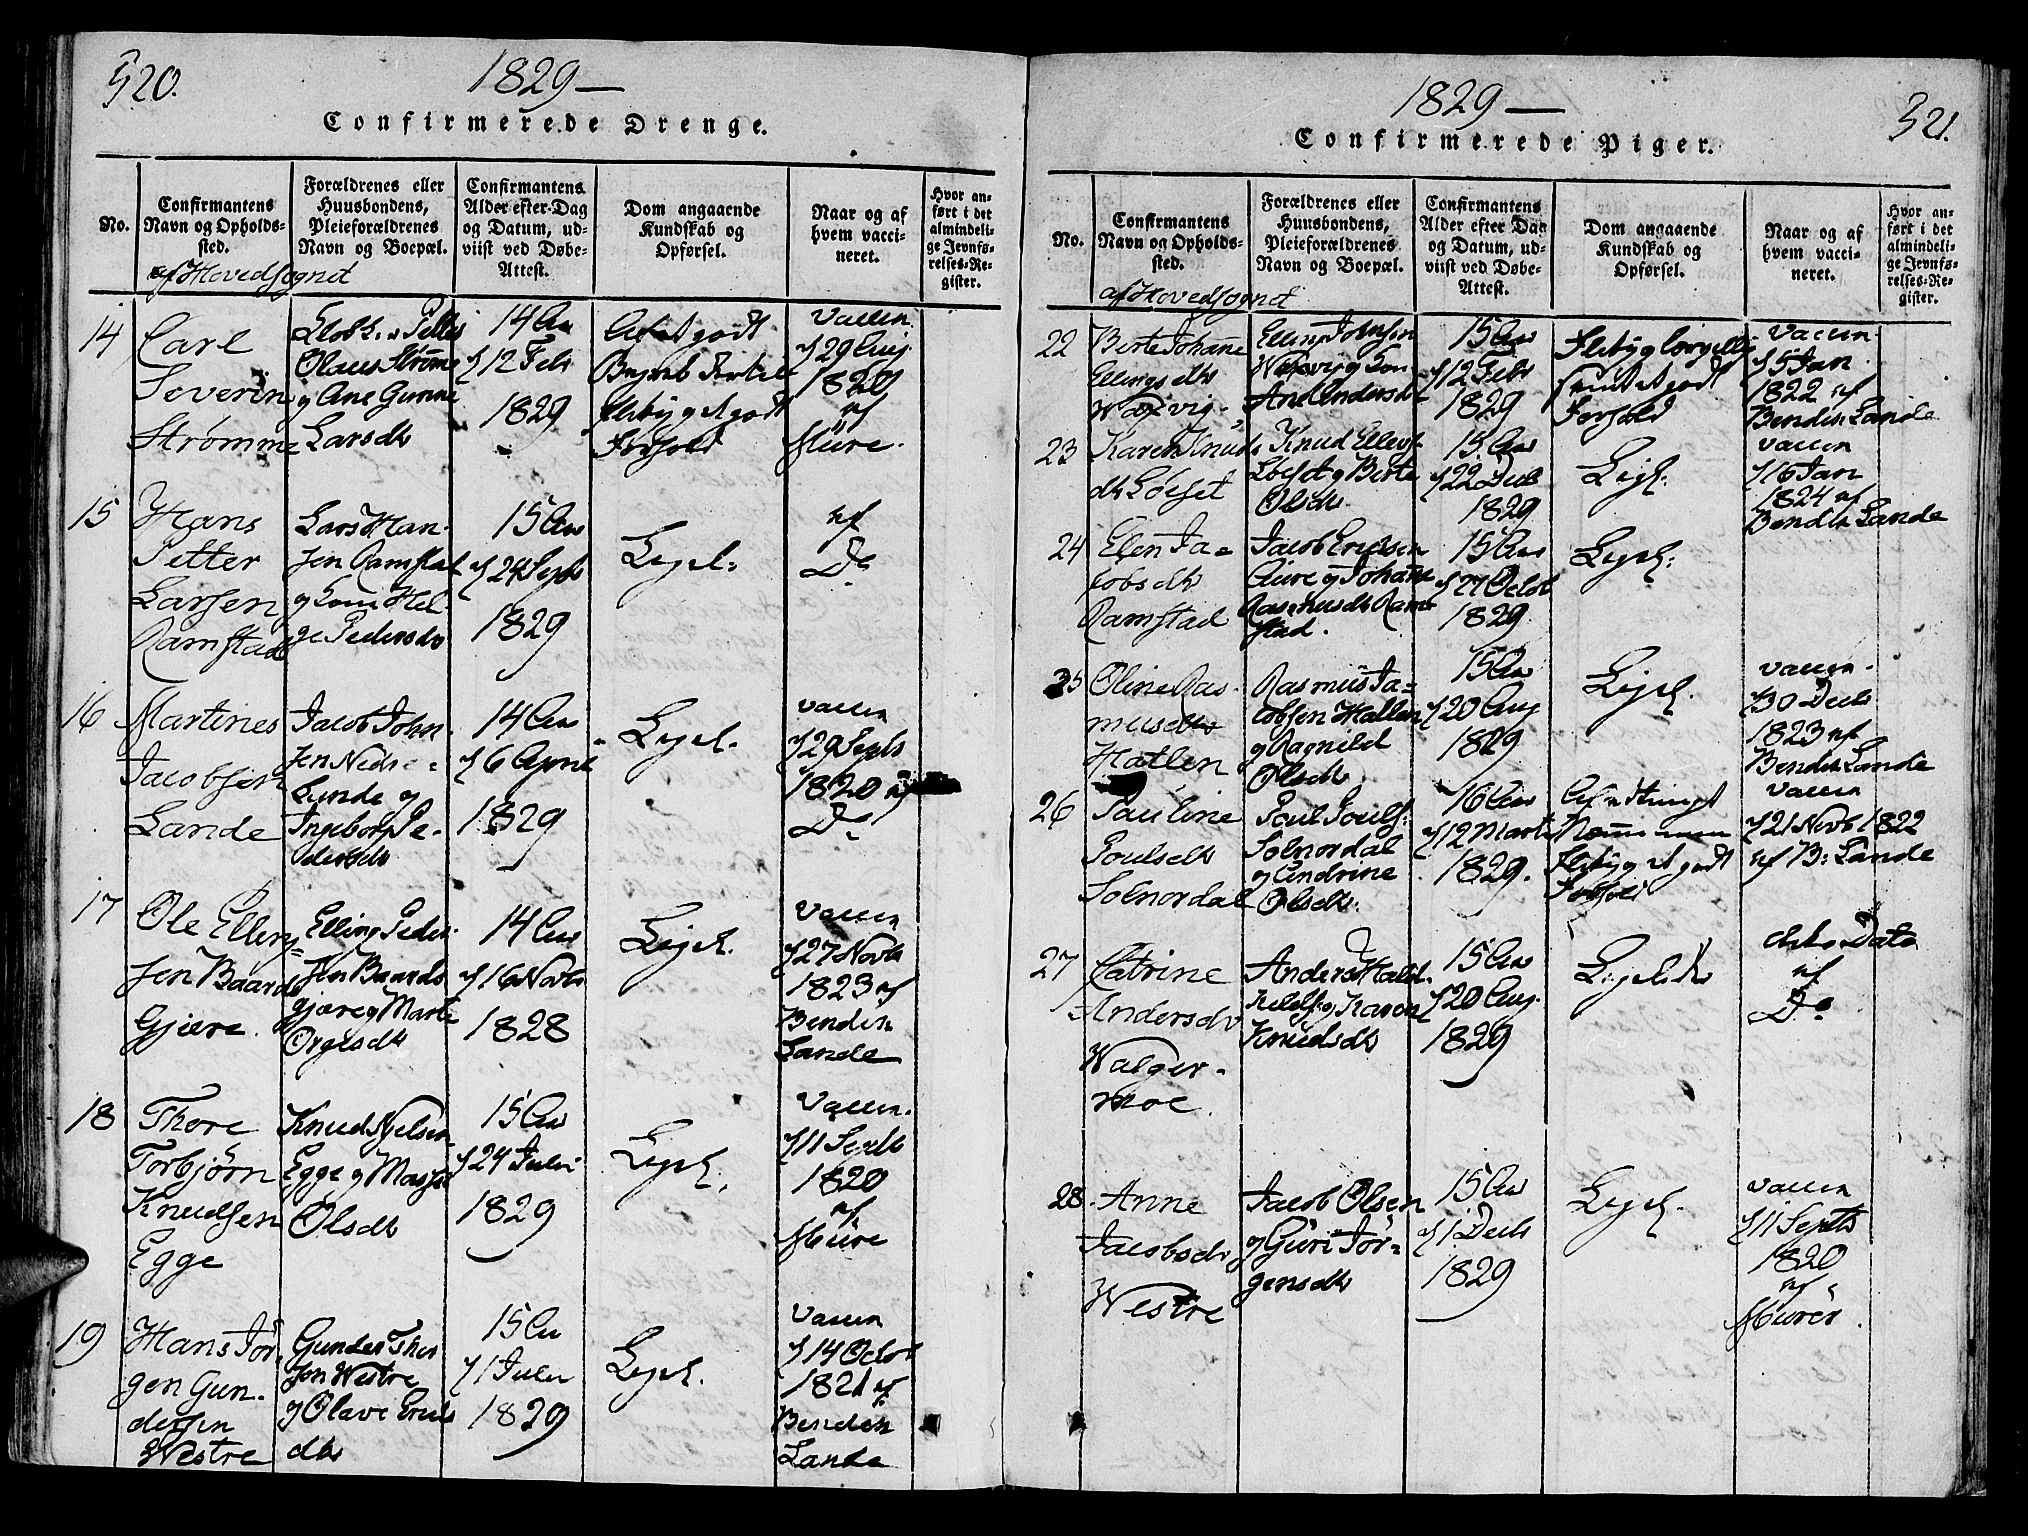 520.
1829 —
Confirmerede Drenge.
No.
Confirmantens
Navn og Opholds-
sted.
Forældrenes eller
Huusbondens,
Pleieforældrenes
Navn og Boepæl.
Confirmantens
Alder efter Dag
og Datum, ud-
viist ved Døbe-
Attest.
Dom angaaende
Kundskab og
Opførsel.
Naar og af
hvem vacci-
neret.
Hvor an-
ført i det
almindeli-
ge Jevnfø-
relses-Re-
gister.
af Hovedsognet
14
Carl
Severin
Strømme
Olaus Strømme
og Ane Gurine
Larsdtr
14 Aar
12 Febr
1829
godt
Forhold
Vaccin
29 Aug
1820
af
Müre.
15
Hans
Petter
Larsen
Ramstad
Lars Han-
sen Ramstad
og Kone Hel-
ge Pedersdtr
15 Aar
24 Septr
1829
Ligel.
af
Do
16
Martines
Jacobsen
Lande
Jacob John-
sen Nedre-
Lunde og
Ingeborg Pe-
dersdtr
14 Aar
6 April
1829
Ligel.
Vaccin
29 Septr
1820 af
Do
17
Ole Elling-
sen Baards
Gjære.
Elling Peder-
sen Baards
gjære og Marte
Olsdtr
14 Aar
16 Novbr
1828
Ligel.
Vaccin
27 Novbr
1823 af
Bendix
Lande
18
Thore
Torbjørn
Knudsen
Egge
Knud Nielsen
Egge og Massi
Olsdtr
15 Aar
24 Juli
1829
Ligel.
Vaccin.
11 Septb
1820
af
Müre
19
Hans Jør-
gen Gun-
dersen
Westre
Gunder Thor
sen Westre
og Olave Erics
dtr
15 Aar
1 Juli
1829
Ligel.
Vaccin
14 Octbr
1821 af
Bendix
Lande
1829 —
521.
Confirmerede Piger.
No.
Confirmantens
Navn og Opholds-
sted.
Forældrenes eller
Huusbondens,
Pleieforældrenes
Navn og Boepæl.
Confirmantens
Alder efter Dag
og Datum, ud-
viist ved Døbe-
Attest.
Dom angaaende
Kundskab og
Opførsel.
Naar og af
hvem vacci-
neret.
Hvor an-
ført i det
almindeli-
ge Jevnfø-
relses-Re-
gister.
af Hovedsognet
22
Berte Johanne
Ellingsdtr
Waxvig
Elling Johnsen
Waxvig og Kon
Ane Endersdtr
15 Aar
12 Febr
1829
Forhold
Vaccin
5 Jan
1822 af
Bendix Lande
23
Karen Knuds
dtr Løeset
Knud Ellevs
Løeset og Berte
Olsdtr.
15 Aar
22 Decb
1829
Ligel.
Vaccin
16 Jan
1824 af
Bendix Lande
24
Elen Ja-
cobsdtr
Ramstad
Jacob Ericsen
Aure og Johanne
Rasmusdtr Ram
stad.
15 Aar
27 Octob
1829
Ligel.
25
Oline Ras-
musdtr
Hatlen
Rasmus Ja-
cobsen Hatlen
og Ragnild
Olsdtr
15 Aar
20 Aug
1829
Ligel.
Vaccin
30 Decb
1823 af
Bendix Lande
26
Pauline
Poulsdtr
Solnordal
Poul Pouls:
Solnordal
og Andrine
Olsdtr
16 Aar
12 Marts
1829.
Flid og et godt
Forhold
Vaccin
21 Novb 1822
af B: Lande
27
Catrine
Andersdtr
Walger-
moe
Anders Hald-
og Karen
Knudsdtr
15 Aar
20 Aug.
1829
Ligeledes
dito Dato
af
Do
28
Anne
Jacobsdtr
Westre
Jacob Olsen
og Guri Jør-
gensdtr
15 Aar
1 Decb
1829
Ligel.
Vaccin
11 Septb
1820
af
Mürer